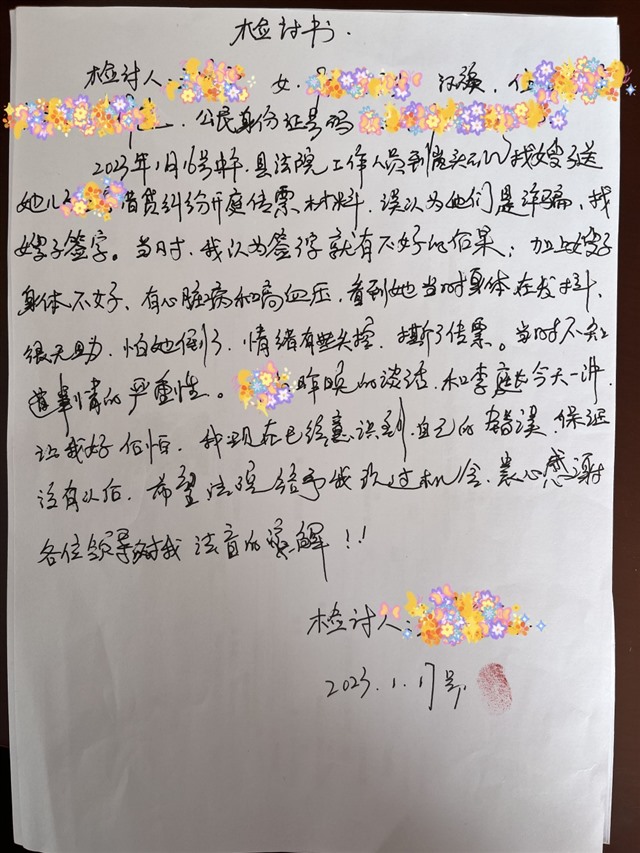 检讨书.
检讨人: 女. 汉族, 住
公民身份证号码
2023年1月16号中午.县法院工作人员到 找嫂子送
她儿 借贷纠纷开庭传票材料.误认为他们是诈骗,找
嫂子签字。当时,我认为签字就有不好的后果;加上嫂子
身体不好、有心脏病和高血压,看到她当时身体在发抖、
很无助,怕她倒了,情绪有些失控,撕了传票。当时不知
道事情的严重性。 昨晚的谈话,和李庭长今天一讲.
让我好后怕,我现在已经意识到自己的错误,保证
没有以后,希望法院给予我改过机会,衷心感谢
各位领导对我法盲的谅解!!
检讨人:
2023.1.17号,